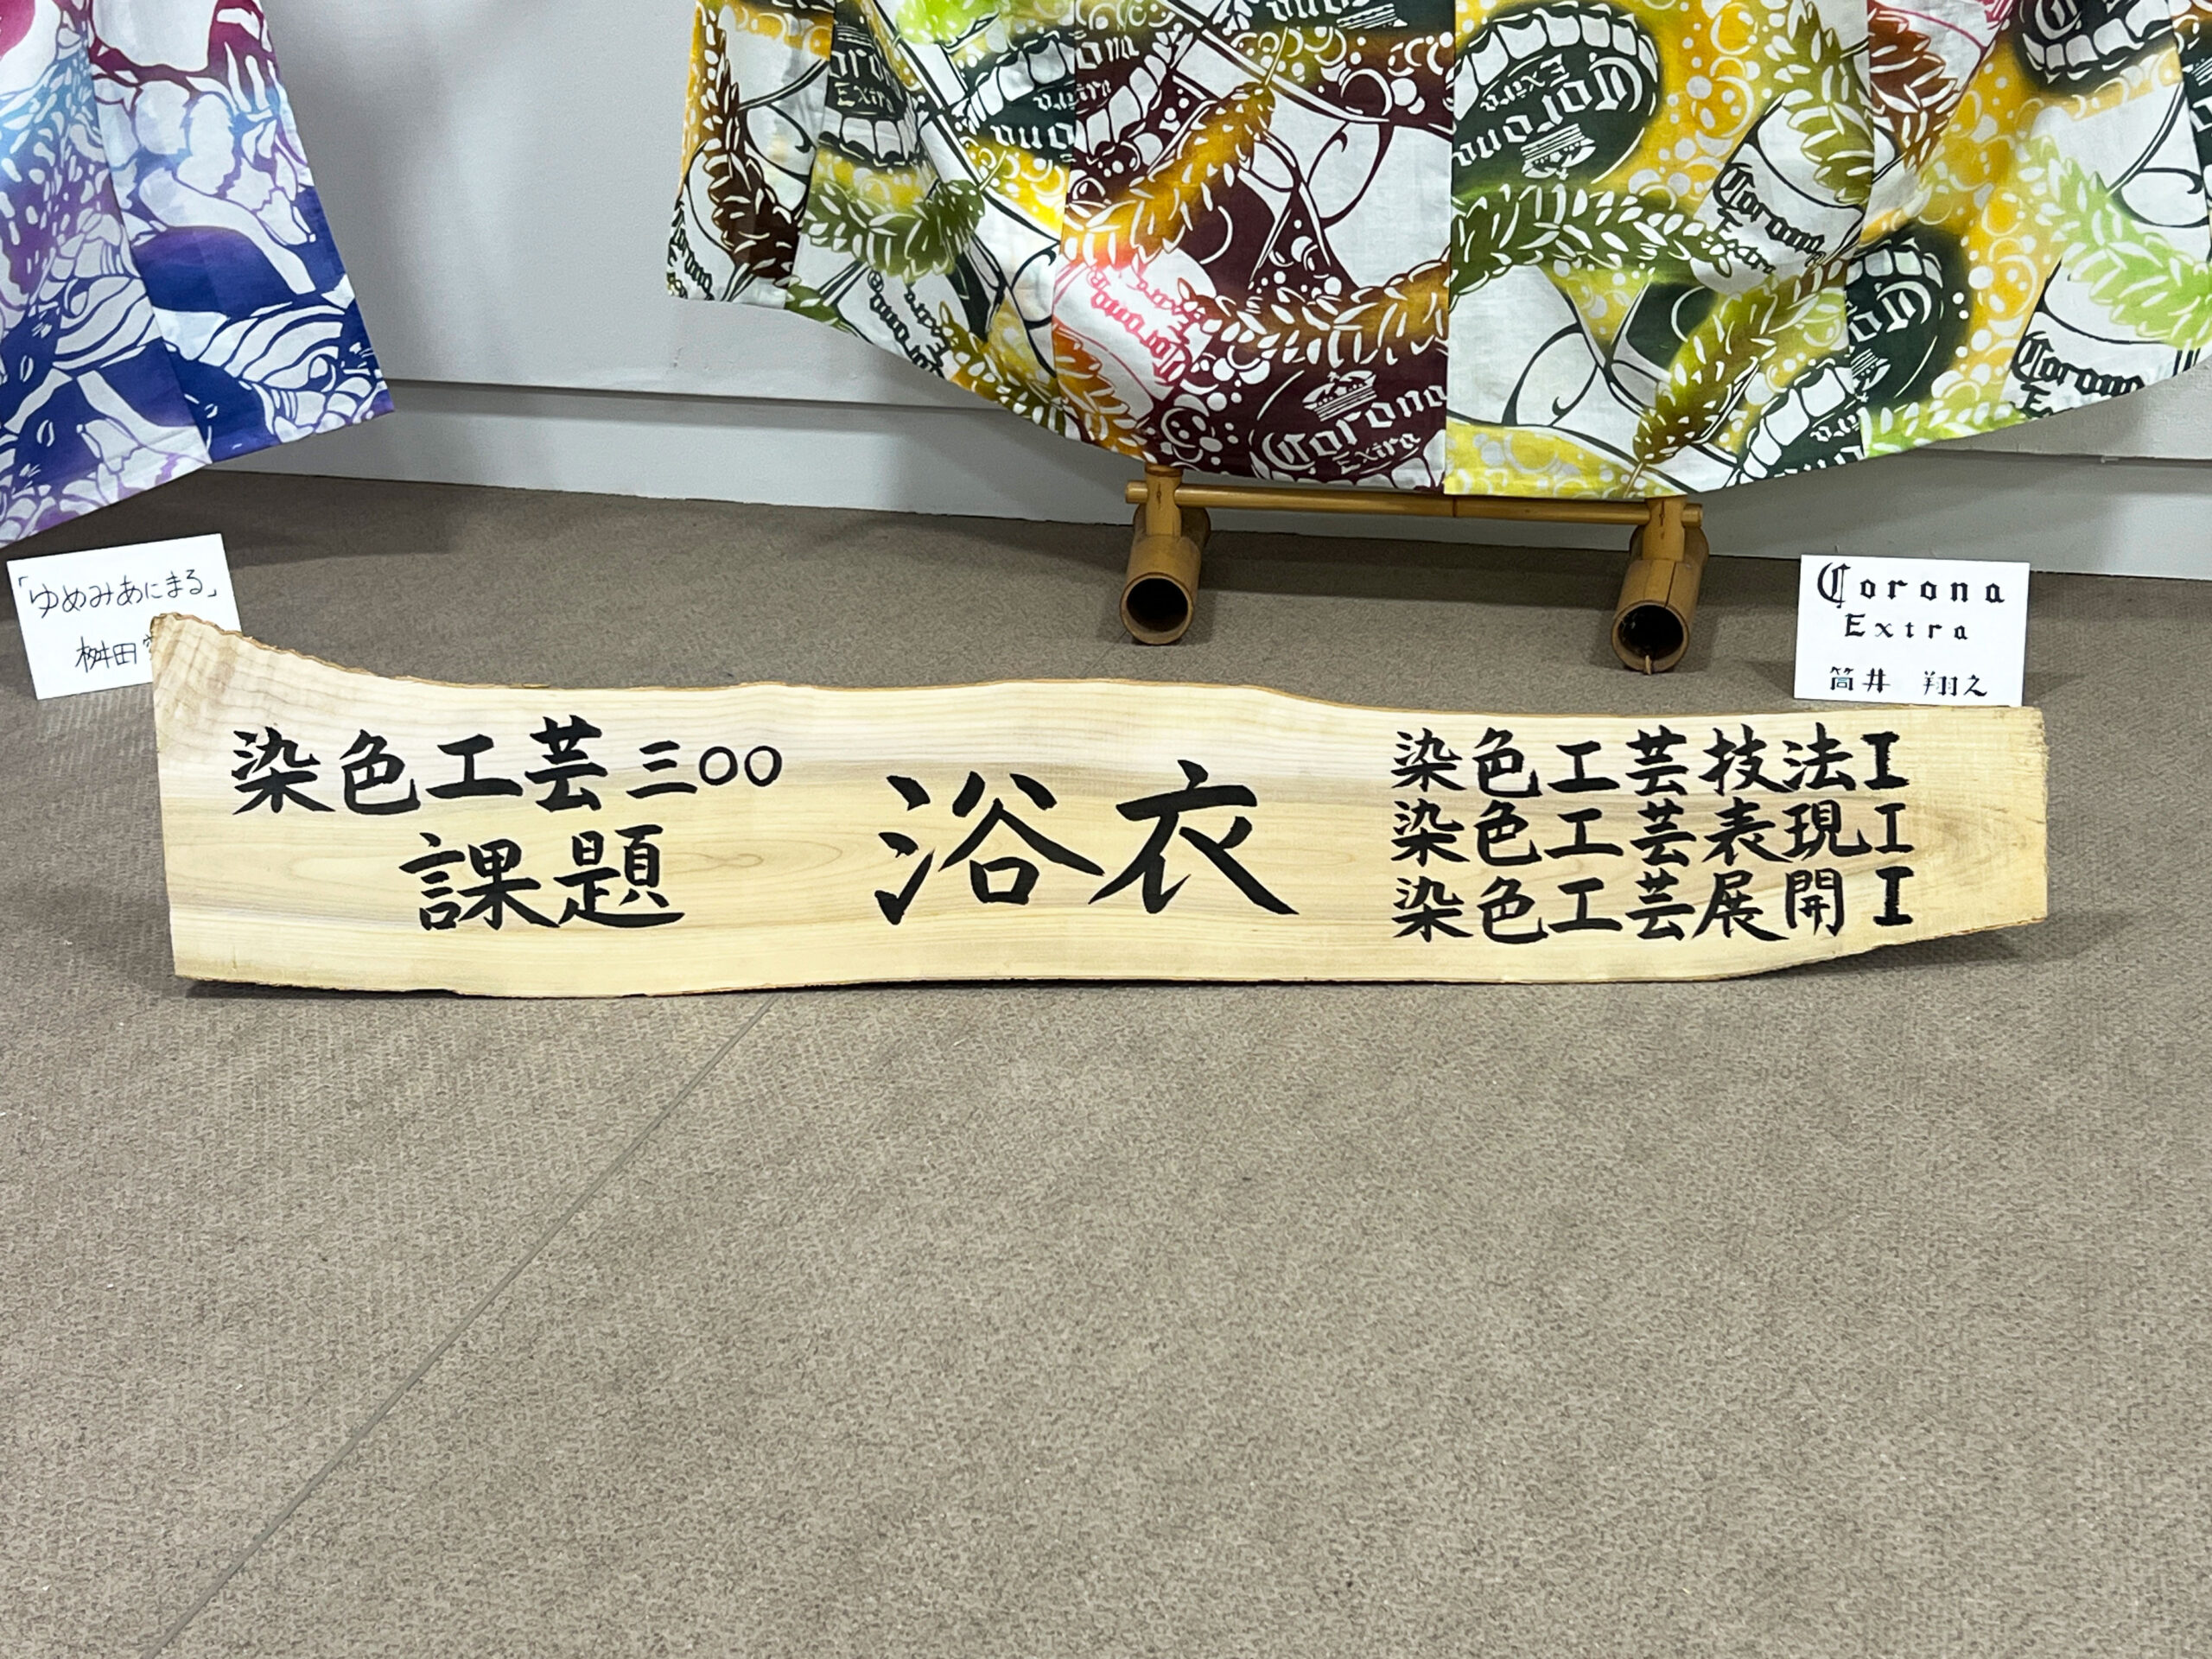 Corona
Extra
Corona
Extra
Corona
Extra
Corona
Extra
「ゆめみあにまる」
桝田
Corona
Extra
筒井 翔之
染色工芸三〇〇
課題
浴衣
染色工芸技法I
染色工芸表現I
染色工芸展開I